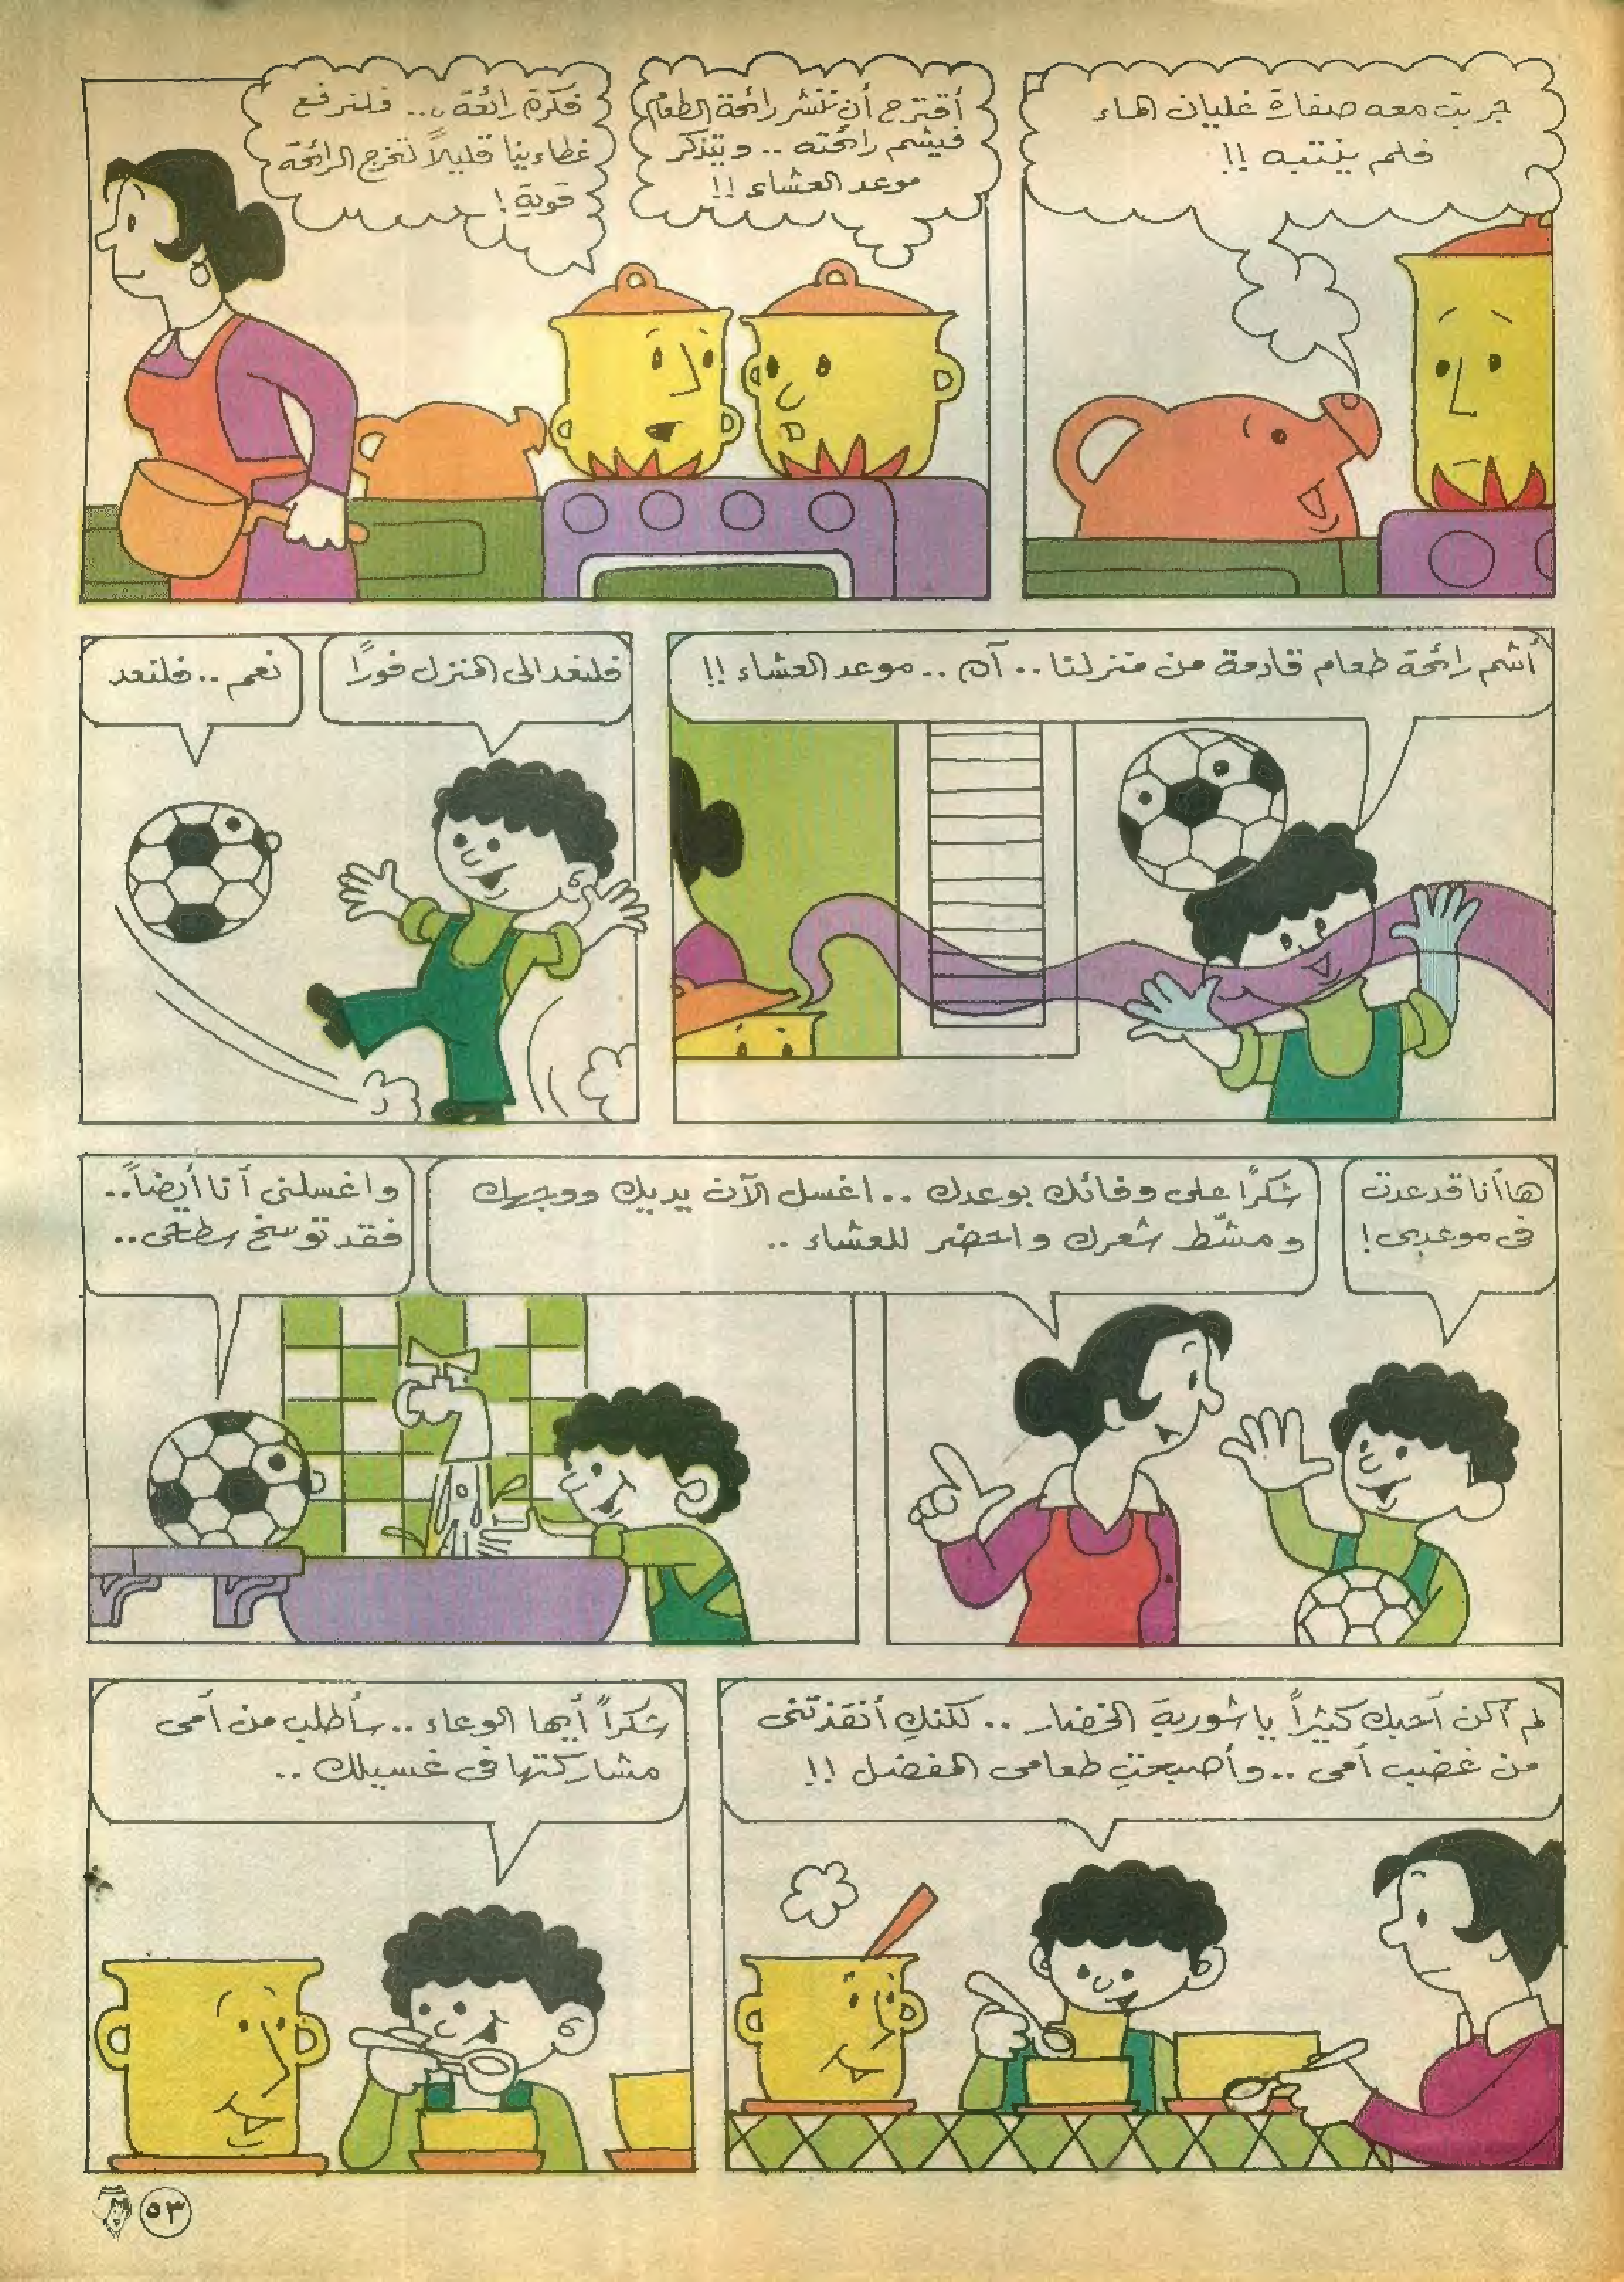 جربت معه صفارة غليان الماء
فلم ينتبه !!
أقترح أن ننشر رائحة الطعام
فيشم رائحته .. ويتذكر
موعد العشاء !!
فكرة رائعة .. فلنرفع
غطاءينا قليلاً لتخرج الرائحة
قوية !
أشم رائحة طعام قادمة من منزلنا .. آه .. موعد العشاء !!
فلنعد الى المنزل فورًا
نعم .. فلنعد
ها أنا قد عدت
فى موعدى !
شكرًا على وفائك بوعدك .. اغسل الآن يديك ووجهك
ومشّط شعرك واحضر للعشاء ..
واغسلنى أنا أيضاً ..
فقد توسخ سطحى ..
لم أكن أحبك كثيراً يا شوربة الخضار .. لكنكِ أنقذتنى
من غضب أمى .. وأصبحتِ طعامى المفضل !!
شكراً أيها الوعاء .. سأطلب من أمى
مشاركتها فى غسيلك ..
٥٣